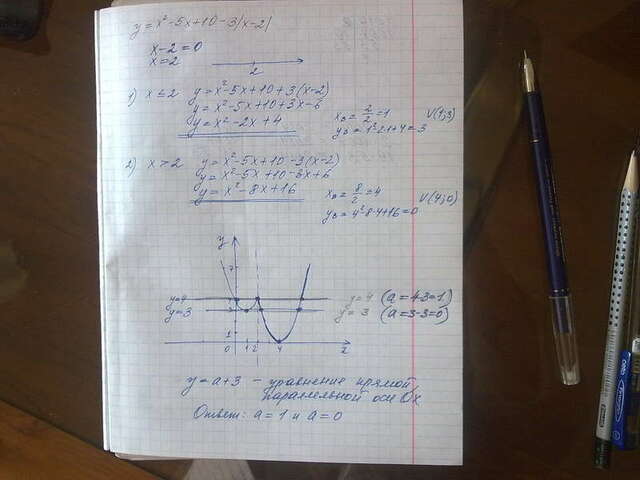 y = x² - 5x + 10 - 3|x-2|
x - 2 = 0
x = 2
2
1) x ≤ 2 y = x² - 5x + 10 + 3(x-2)
y = x² - 5x + 10 + 3x - 6
y = x² - 2x + 4
x₀ = 2/2 = 1 V(1;3)
y₀ = 1² - 2·1 + 4 = 3
2) x > 2 y = x² - 5x + 10 - 3(x-2)
y = x² - 5x + 10 - 3x + 6
y = x² - 8x + 16
x₀ = 8/2 = 4 V(4;0)
y₀ = 4² - 8·4 + 16 = 0
y
7
y=4 y = 4 (a = 4-3=1)
y=3 y = 3 (a = 3-3=0)
1
0 1 2 4 x
y = a + 3 - уравнение прямой,
параллельной оси Ox
Ответ: a = 1 и a = 0